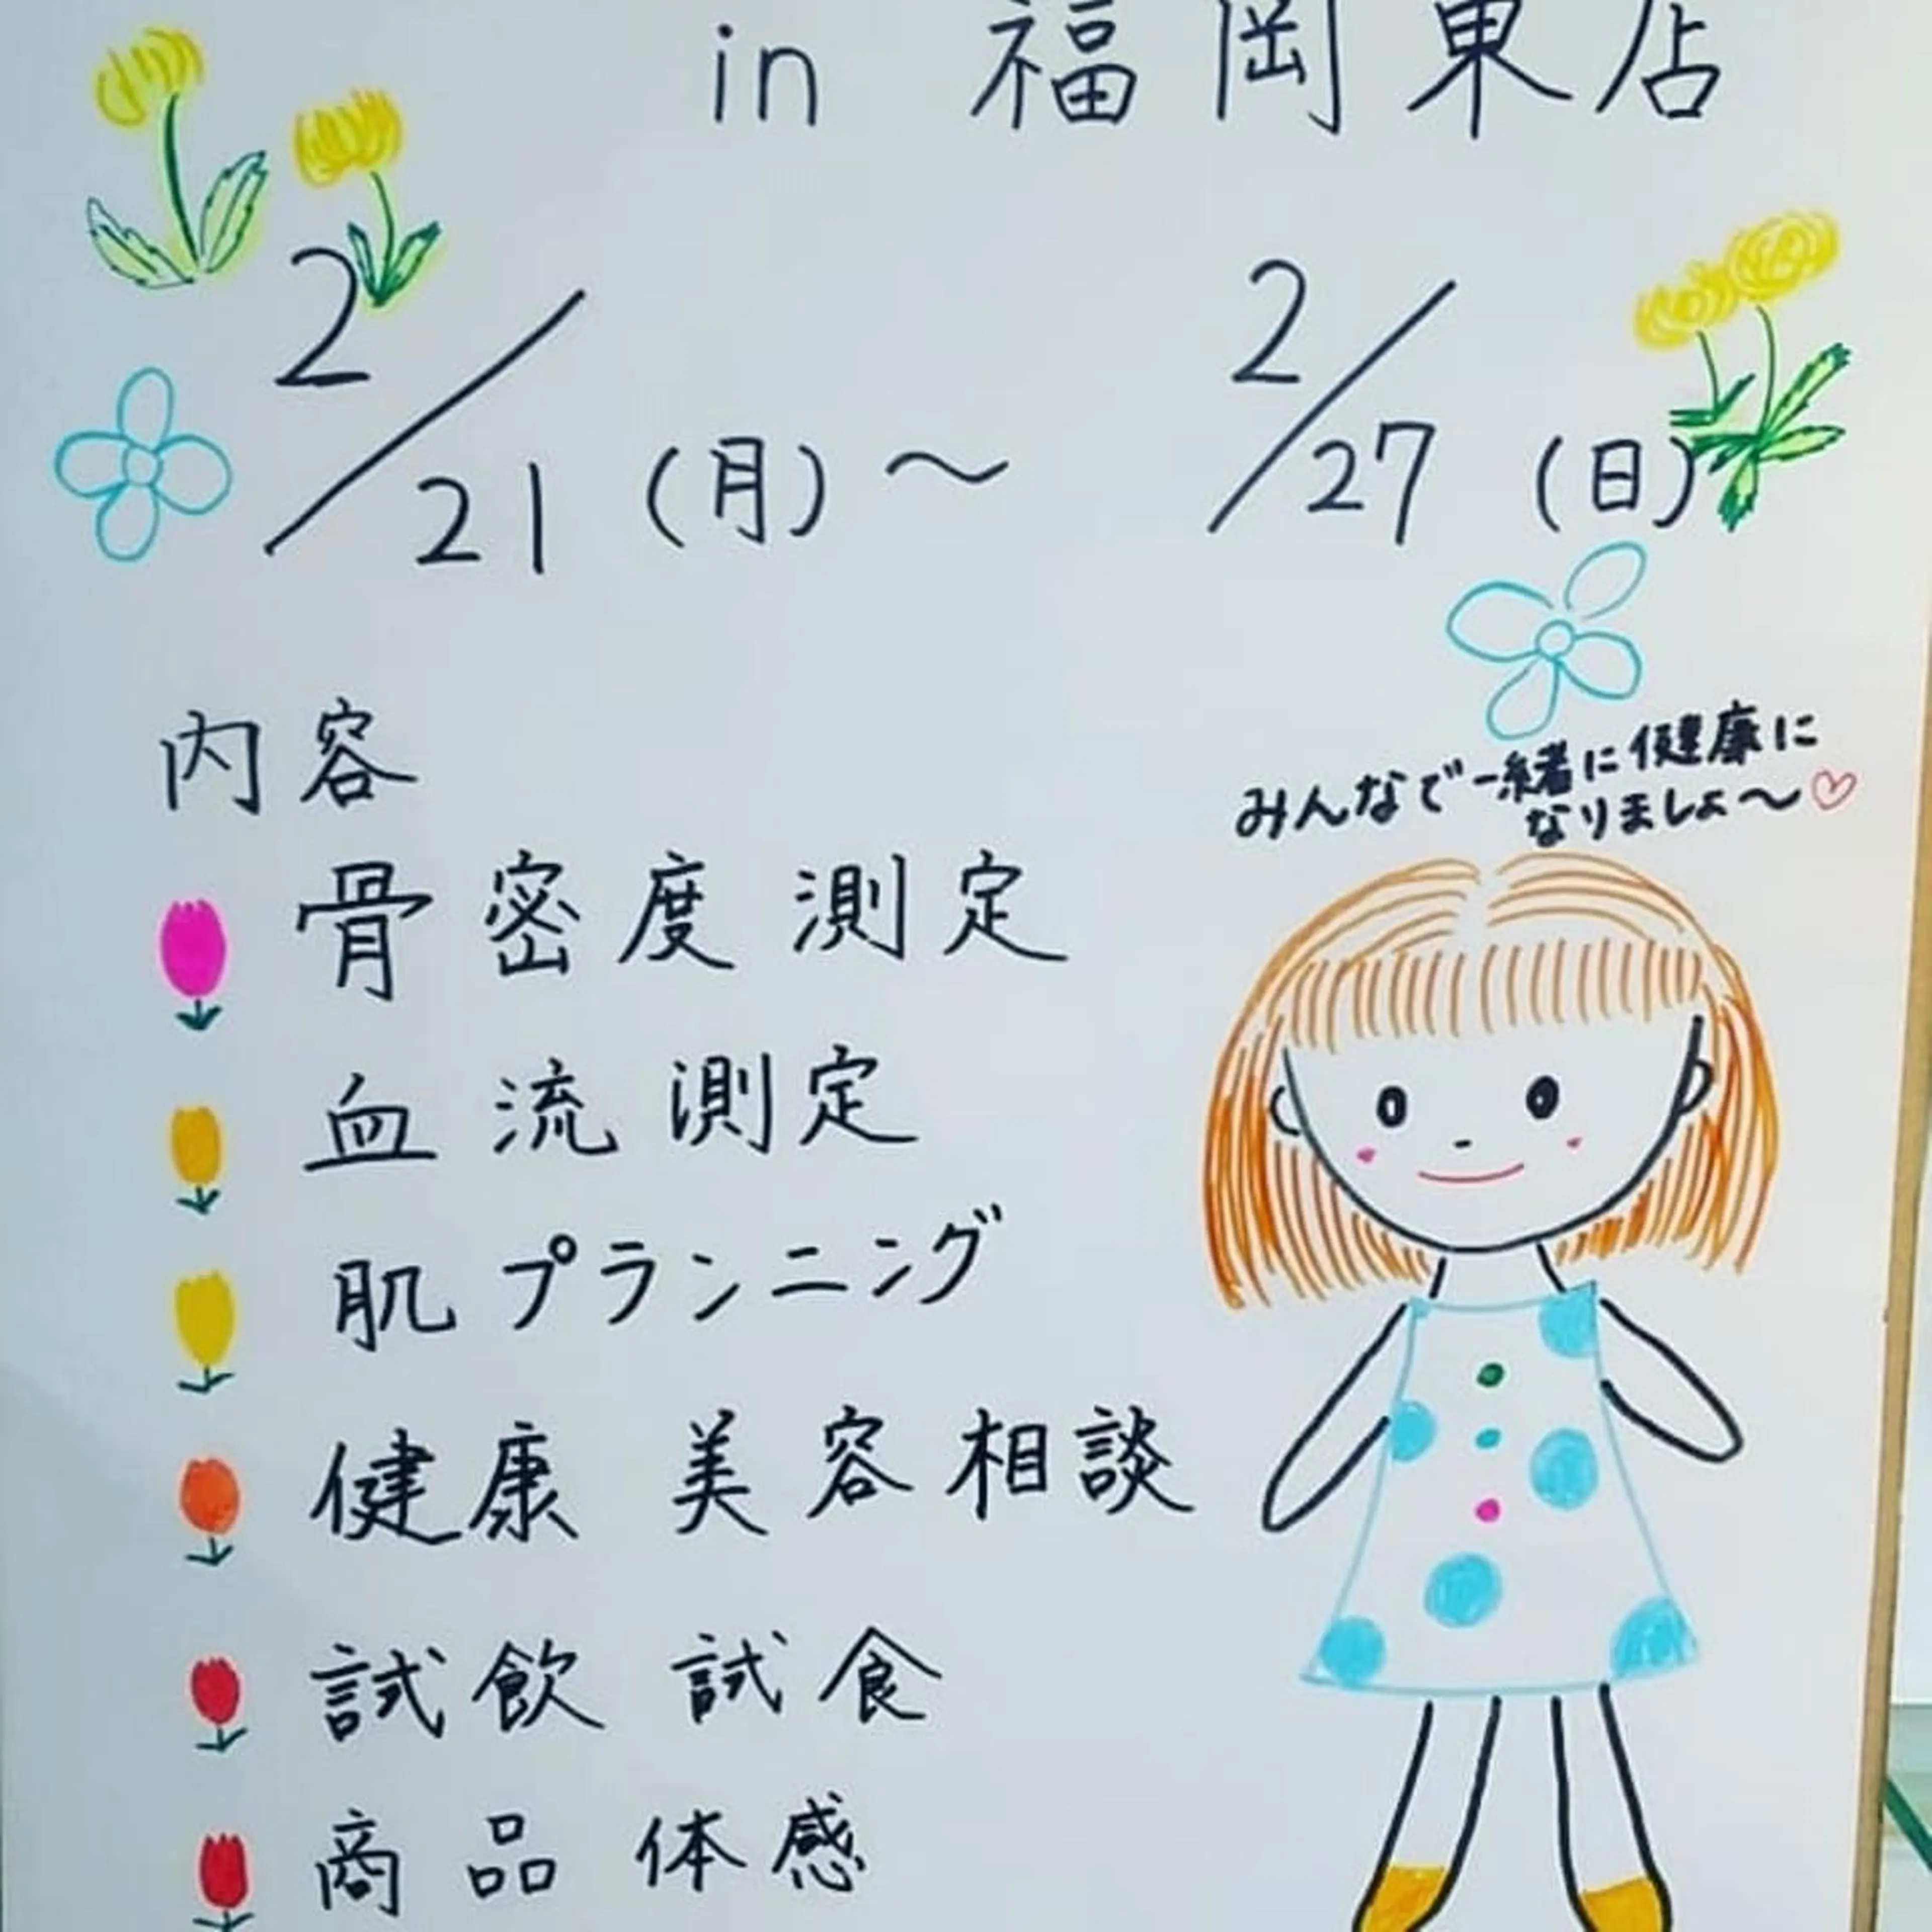 in 福岡東店
2/21(月)〜 2/27(日)
内容
みんなで一緒に健康に
なりましょ〜♡
骨密度測定
血流測定
肌プランニング
健康 美容相談
試飲 試食
商品体感